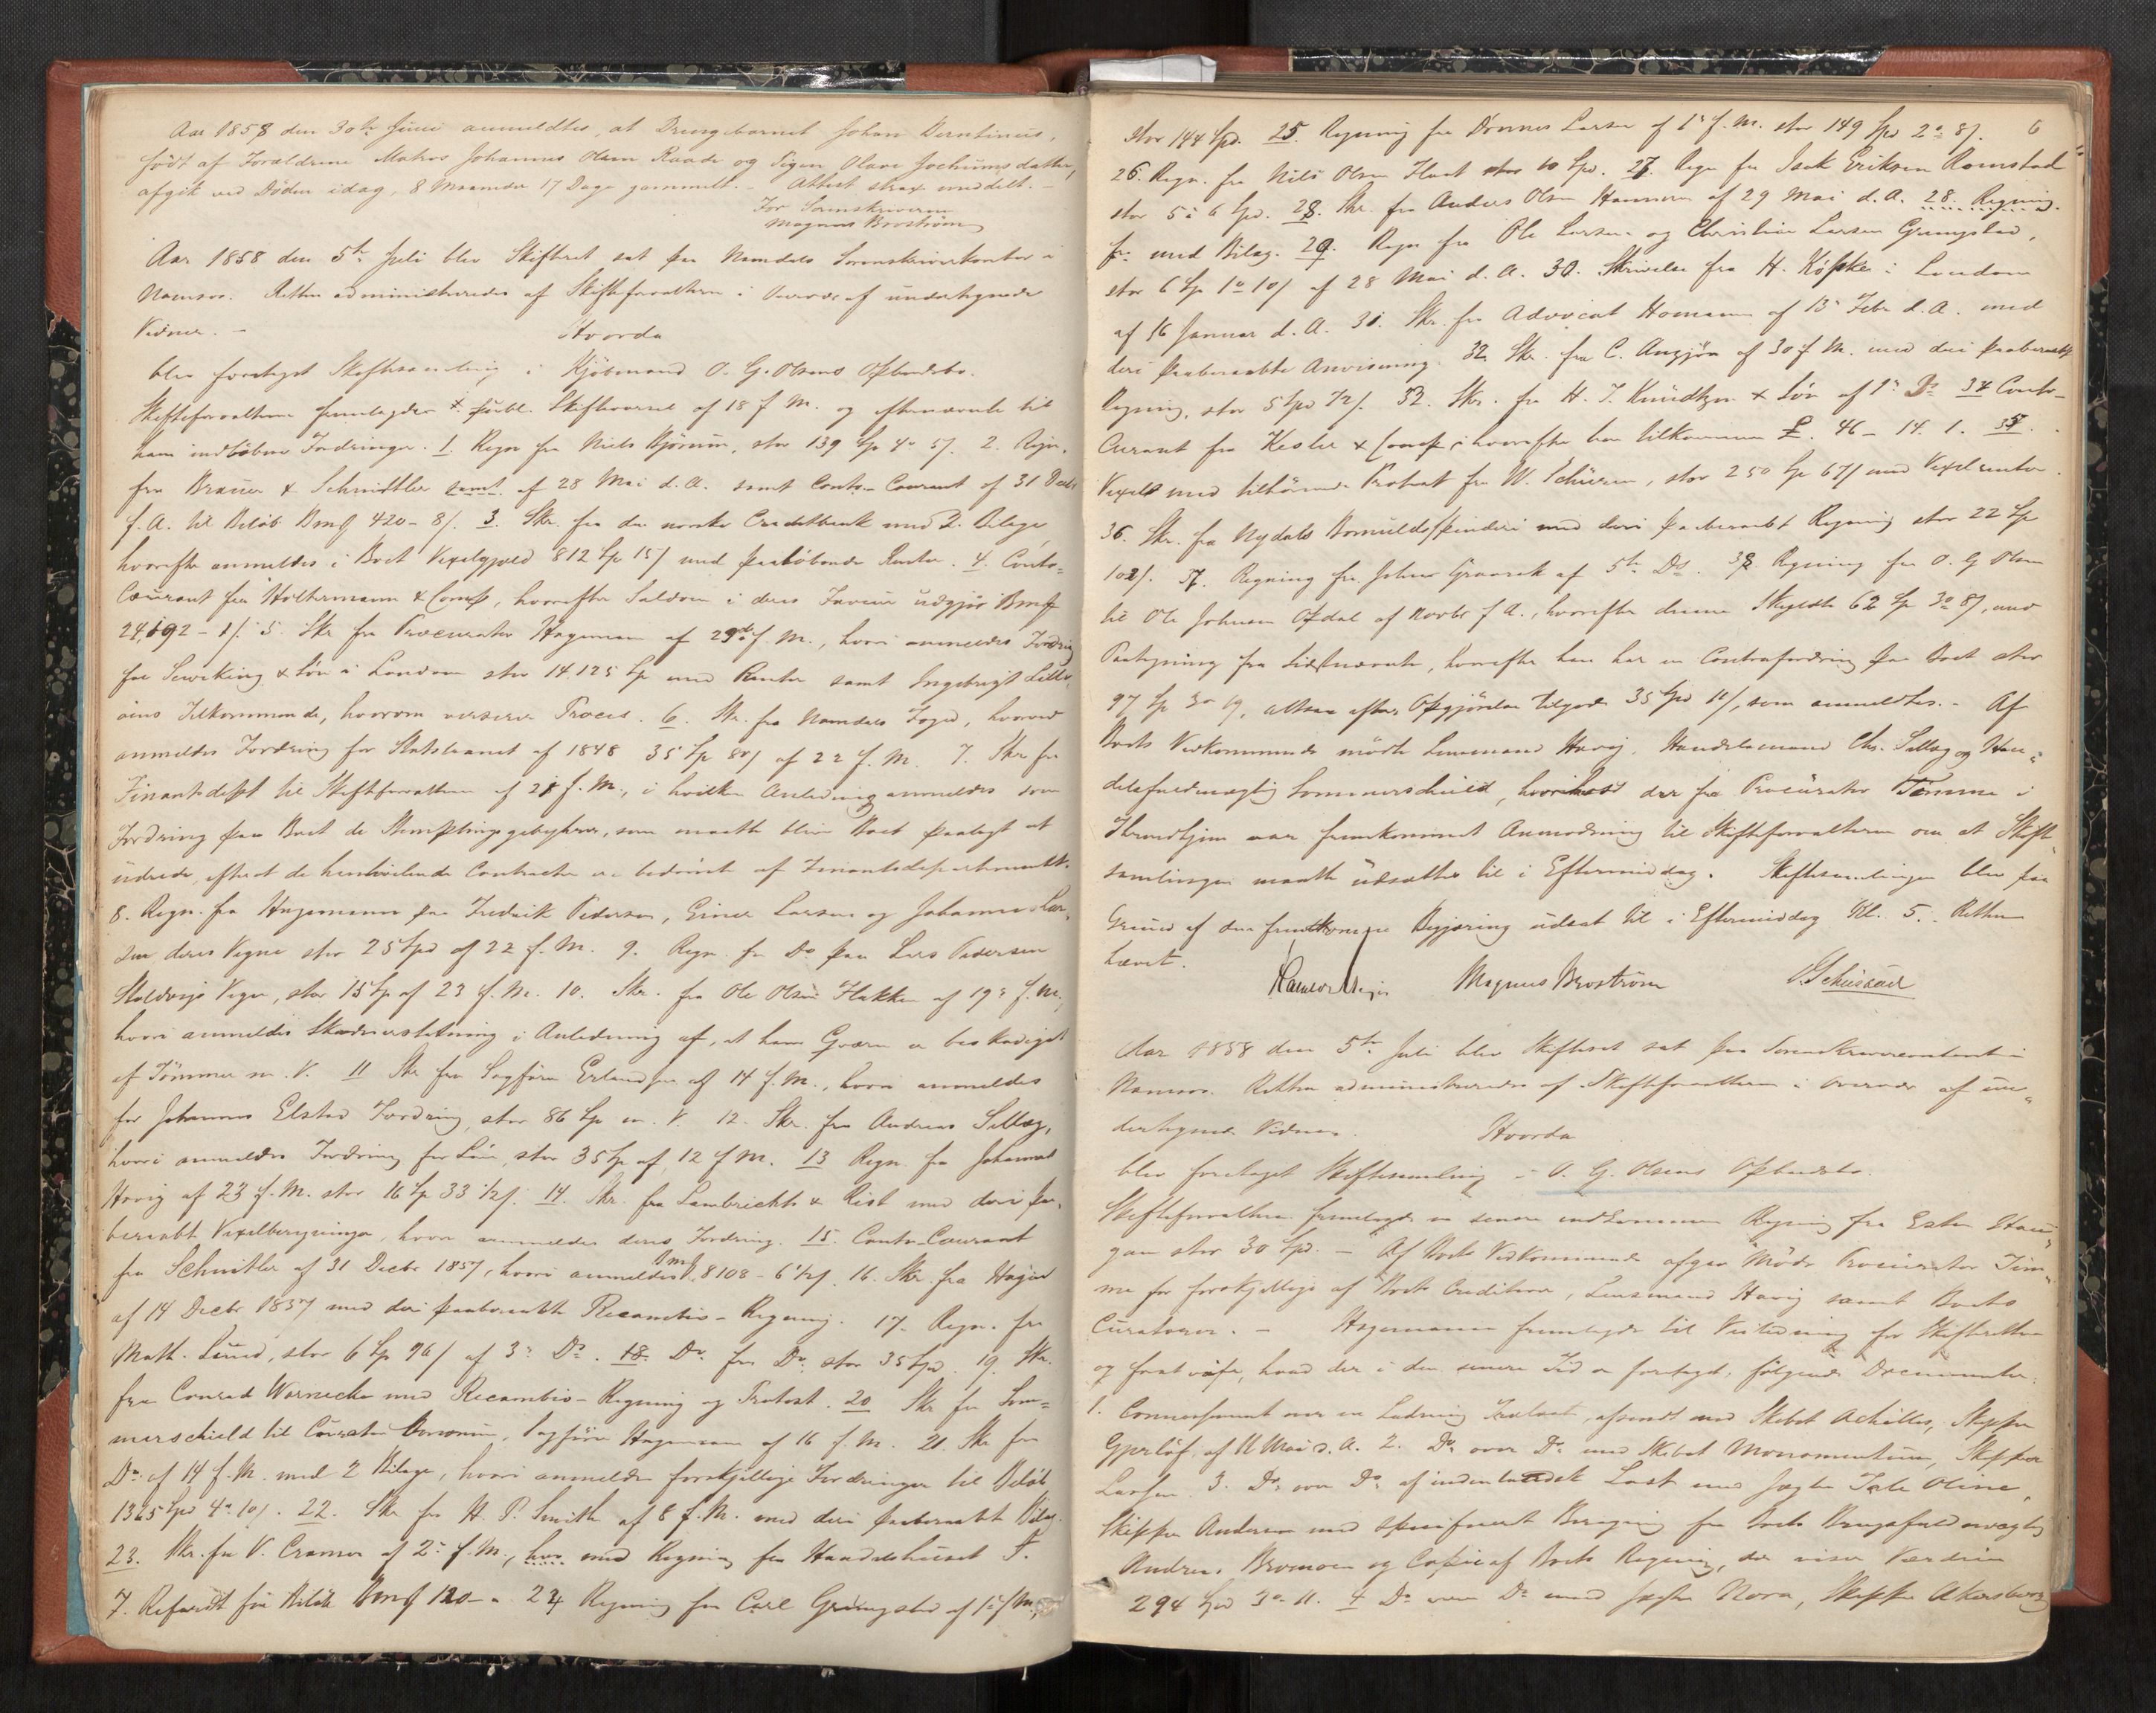 Aar 1858 den 30te Juni anmeldtes, at Drengebarnet Johan Berntinus,
født af Forældrene Matros Johannes Olsen Raade og Pigen Olave Jochumsdatter,
afgik ved Døden idag, 8 Maaneder 17 Dage gammelt. - Attest strax meddelt. -
For Sorenskriveren
Magnus Broström
Aar 1858 den 5te Juli blev Skifteret sat paa Namdals Sorenskriverkontor i
Namsos. Retten administreredes af Skifteforvalteren i Overvær af undertegnede
Vidner. - Hvorda
blev foretaget Skiftesamling i Kjøbmand O. G. Olsens Opbudsbo.
Skifteforvalteren fremlagde publ. Skiftevarsel af 18 f. M. og efternævnte til
ham indløbne Fordringer. 1. Regn fra Niels Bjørum, stor 139 Sp 4 o 5/. 2. Regn.
fra Brauer & Schmidtler samt af 28 Mai d. A. samt Conto-Courant af 31 Decbr
f. A. til Beløb Bmk 420 - 8/. 3. Skr. fra den norske Creditbank med 2 Bilage,
hvorefter anmeldes i Boet Vexelgjæld 812 Sp 15/ med paaløbende Renter. 4. Conto-
Courant fra Holtermann & Comp, hvorefter Saldoen i deres Faveur udgjør Bmk
24,192 - 1/. 5. Skr fra Procurator Hagemann af 29de f. M., hvori anmeldes Fordring
for Sewcking & Søn i London stor 14.125 Sp med Renter samt Ingebrigt Lille-
øens Tilkommende, hvorom verserer Proces. 6. Skr. fra Namdals Foged, hvorved
anmeldes Fordring for Statslaanet af 1848 35 Sp 80/ af 22 f. M. 7. Skr fra
Finantsdept til Skifteforvalteren af 21 f. M., i hvilken Anledning anmeldes som
Fordring paa Boet de Stemplingsgebyhrer, som maatte blive Boet paalagt at
udrede, efterat de henhvilende Contracter er bedømte af Finantsdepartementet.
8. Regn. fra Hagemann paa Fredrik Pedersen, Einer Larsen og Johannes Lar-
sen deres Vegne stor 25 Spd af 22 f. M. 9. Regn. fra Do paa Lars Pedersen
Vegne, stor 15 Sp af 23 f. M. 10. Skr. fra Ole Olsen Flakken af 19de f. M.,
hvori anmeldes Skadeserstatning i Anledning af, at hans Qværn er beskadiget
af Tømmer m. V. 11 Skr fra Sagfører Erlandsen af 14 f. M., hvori anmeldes
for Johannes Elstad Fordring, stor 86 Sp m. V. 12. Skr. fra Andreas Sellæg,
hvori anmeldes Fordring for Løn, stor 35 Sp af 12 f. M. 13 Regn. fra Johannes
Havig af 23 f. M. stor 16 Sp 33 1/2/. 14. Skr. fra Lambrechts & Rist med deri paa-
beraabt Vexelberegninger, hvori anmeldes deres Fordring. 15. Conto-Courant
fra Schnitler af 31 Decbr 1857, hvori anmeldes Bmk 8108 - 6 1/2/. 16. Skr. fra
af 14 Decbr 1857 med deri paaberaabte Recambio-Regning. 17. Regn. fra
Math. Lund, stor 6 Sp 96/ af 3de Do. 18. Do fra Do stor 35 Spd. 19. Skr.
fra Conrad Warnecke med Recambio-Regning og Protest. 20 Skr fra Som-
merschield til Curator Sagfører Hagemann af 16 f. M. 21. Skr fra
Do af 14 f. M. med 2 Bilage, hvori anmeldes forskjellige Fordringer til Beløb
1365 Spd 4 o 10/. 22. Skr fra H. P. Smith af 8 f. M. med deri paaberaabt Bilag.
23. Skr. fra V. Cramer af 2de f. M., med Regning fra Handelshuset F.
J. for Beløb Bmk 120 - . 24 Regning fra Carl Grungstad af 1ste f. M.,
6
stor 144 Spd. 25. Regning fra Larsen af 1ste f. M. stor 149 Spd 2 o 8/.
26. Regn. fra Nils Olsen stor 10 Spd. 27. Regn fra Isak Eriksen Romstad
stor 5 á 6 Spd. 28. Skr. fra Anders Olsen af 29 Mai d. A. 28. Regning.
fra med Bilag. 29. Regn fra Ole Larsen og Christian Larsen Grungstad,
stor 6 Sp 1 o 10/ af 28 Mai d. A. 30. Skrivelse fra H. Köpke i London
af 16 Januar d. A. 31. Skr. fra Advocat Homann af 15 Febr d. A. med
deri paaberaabte Anvisning. 32 Skr. fra C. Angjøn af 30 f. M. med deri paaberaabt
Regning, stor 5 Spd 72/. 33. Skr. fra H. J. Knudtzon & Søn af 1ste Do 34 Conto-
Curant fra Kesler & Comp, hvorefter ham tilkommer £ 46 - 14. 1. 35.
Vexel med tilhørende Protest fra W. stor 250 Sp 67/ med Vexelrenter.
36. Skr. fra Nydals Bomuldsspinderi med deri paaberaabt Regning stor 22 Sp
102/. 37. Regning fra Johan af 5te Do. 38. Regning fra O. G. Olsen
til Ole Johnsen Opdal af Novbr f. A., hvorefter denne skyldte 62 Sp 3 o 8/, med
Paategning fra Sidstnævnte, hvorefter han har en Contrafordring paa Boet stor
97 Sp altsaa efter Opgjørelse tilgode 35 Spd 11/, som anmeldtes. - Af
Boets Vedkommende mødte Lensmand Havig, Handelsmand Chr. Sellæg og Han-
delsfuldmægtig Sommerschield, hvorhos der fra Procurator Tømme i
Throndhjem var fremkommet Anmodning til Skifteforvalteren om at Skifte-
samlingen maatte udsættes til i Eftermiddag. Skiftesamlingen blev paa
Grund af den fremkomne Begjæring udsat til i Eftermiddag Kl. 5. Retten
hævet.
Magnus Broström
Aar 1858 den 5te Juli blev Skifteret sat paa Sorenskrivercontoret i
Namsos. Retten administreredes af Skifteforvalteren i Overvær af un-
dertegnede Vidner. Hvorda
blev foretaget Skiftesamling i O. G. Olsens Opbudsbo.
Skifteforvalteren fremlagde en senere indkommen Regning fra Esten Hau-
gan stor 30 Spd. - Af Boets Vedkommende afgav Møde Procurator Tøm-
me for forskjellige af Boets Creditorer, Lensmand Havig samt Boets
Curatorer. - Hagemann fremlagde til Veiledning for Skifteretten
og for at vise, hvad der i den senere Tid er foretaget, følgende Documenter:
1. Connossement over en Ladning Trælast, afsendt med Skibet Achilles, Skipper
af 11 Mai d. A. 2. Do over Do med Skibet Monomentum, Skipper
Larsen. 3. Do over Do af indenlandsk Last med Jagten Tale Oline,
Skipper Andersen med specificeret Beregning fra Boets Brugsfuldmægtig
Andreas Bromoen og Copie af Boets Regning, der viser Værdien
294 Spd 3 o 11. 4 Do over Do med Jagten Nora, Skipper Akersborg